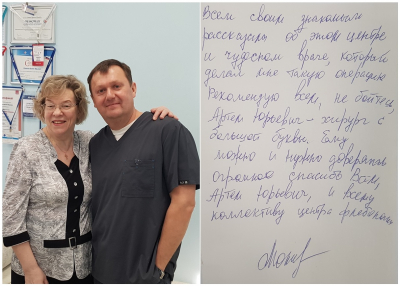 Всем своим знакомым
расскажу об этом центре
и чудесном враче, который
делал мне такую операцию
Рекомендую всем, не бойтесь,
Артем Юрьевич - хирург с
большой буквы. Ему
можно и нужно доверять
огромное спасибо Вам,
Артем Юрьевич, и всему
коллективу центра флебологии